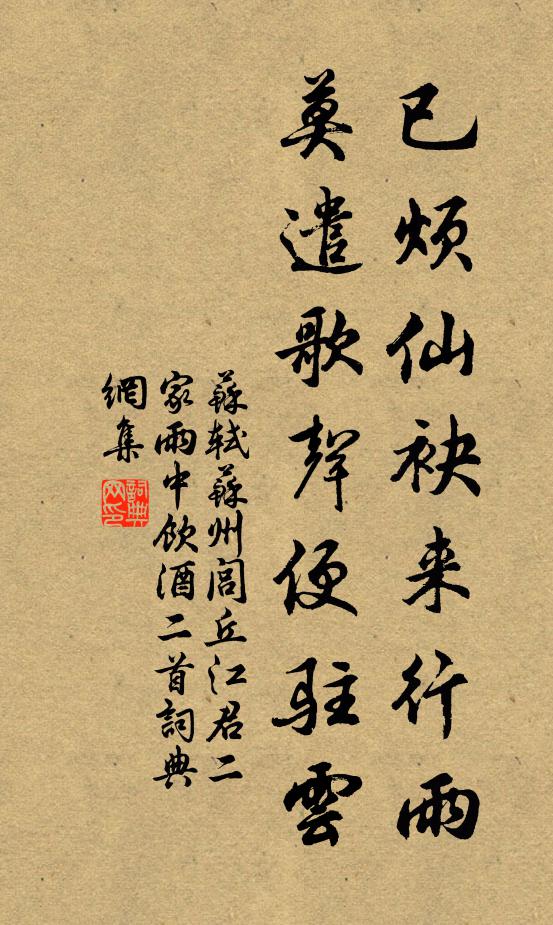 已烦仙袂来行雨
莫遣歌聲便駐雲
蘇軾蘇州閭丘江君二
家雨中飲酒二首詞典
網集
詞典
网印